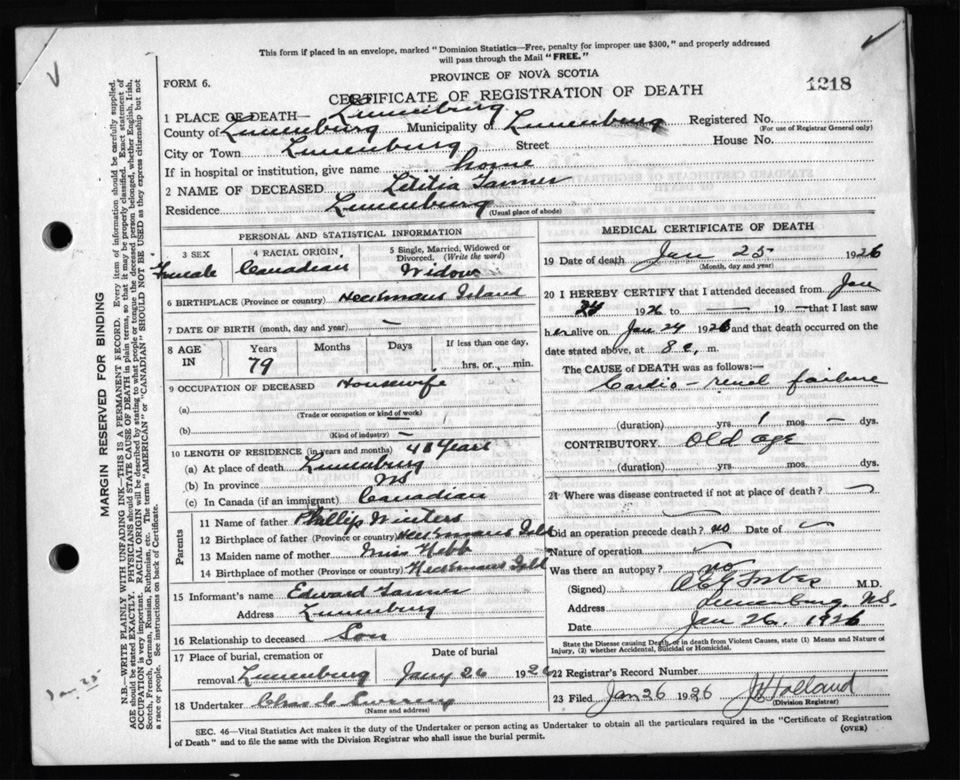 This form if placed in an envelope, marked "Dominion Statistics—Free, penalty for improper use $300," and properly addressed
will pass through the Mail "FREE."
PROVINCE OF NOVA SCOTIA
FORM 6.
1218
CERTIFICATE OF REGISTRATION OF DEATH
1 PLACE OF DEATH— Lunenburg
County of Lunenburg Municipality of Lunenburg Registered No.
(For use of Registrar General only)
City or Town Lunenburg Street House No.
If in hospital or institution, give name home
2 NAME OF DECEASED Letitia Tanner
Residence Lunenburg (Usual place of abode)
PERSONAL AND STATISTICAL INFORMATION
3 SEX 4 RACIAL ORIGIN 5 Single, Married, Widowed or
Divorced. (Write the word)
Female Canadian Widow
6 BIRTHPLACE (Province or country) Heckmans Island
7 DATE OF BIRTH (month, day and year) —
8 AGE IN Years Months Days If less than one day,
79 hrs. or min.
9 OCCUPATION OF DECEASED Housewife
(a)
(Trade or occupation or kind of work)
(b)
(Kind of industry) —
10 LENGTH OF RESIDENCE (in years and months) 48 Years
(a) At place of death Lunenburg
(b) In province NS
(c) In Canada (if an immigrant) Canadian
Parents
11 Name of father Phillip Winters
12 Birthplace of father (Province or country) Heckmans Isld
13 Maiden name of mother Miss
14 Birthplace of mother (Province or country) Heckmans Isld
15 Informant's name Edward Tanner
Address Lunenburg
16 Relationship to deceased Son
17 Place of burial, cremation or Date of burial
removal Lunenburg Jany 26 1926
18 Undertaker Chas
(Name and address)
MEDICAL CERTIFICATE OF DEATH
19 Date of death Jan 25 1926
(Month, day and year)
20 I HEREBY CERTIFY that I attended deceased from Jan
24 1926 to — 19 — that I last saw
her alive on Jan 24 1926 and that death occurred on
date stated above, at 8 m.
The CAUSE of DEATH was as follows:—
Cardio-renal failure
(duration) yrs. 1 mos. — dys.
CONTRIBUTORY Old age
(duration) yrs. mos. dys.
21 Where was disease contracted if not at place of death?
Did an operation precede death? no Date of
Nature of operation
Was there an autopsy? no
(Signed) Forbes M.D.
Address Lunenburg, N.S.
Date Jan 26. 1926
State the Disease causing Death, or in death from Violent Causes, state (1) Means and Nature of
Injury, (2) whether Accidental, Suicidal or Homicidal.
22 Registrar's Record Number
23 Filed Jan 26 1926 Holland
(Division Registrar)
SEC. 46—Vital Statistics Act makes it the duty of the Undertaker or person acting as Undertaker to obtain all the particulars required in the "Certificate of Registration
of Death" and to file the same with the Division Registrar who shall issue the burial permit. (OVER)
MARGIN RESERVED FOR BINDING
N.B.—WRITE PLAINLY WITH UNFADING INK—THIS IS A PERMANENT RECORD. Every item of information should be carefully supplied.
AGE should be stated EXACTLY. PHYSICIANS should STATE CAUSE OF DEATH in plain terms, so that it may be properly classified. Exact statement of
OCCUPATION is very important. RACIAL ORIGIN will be described by stating to what people or tongue the deceased person belonged, whether English, Irish,
Scotch, French, German, Russian, Ruthenian, etc. The terms "AMERICAN" or "CANADIAN" SHOULD NOT BE USED as they express citizenship but not
a race or people. See instructions on back of Certificate.